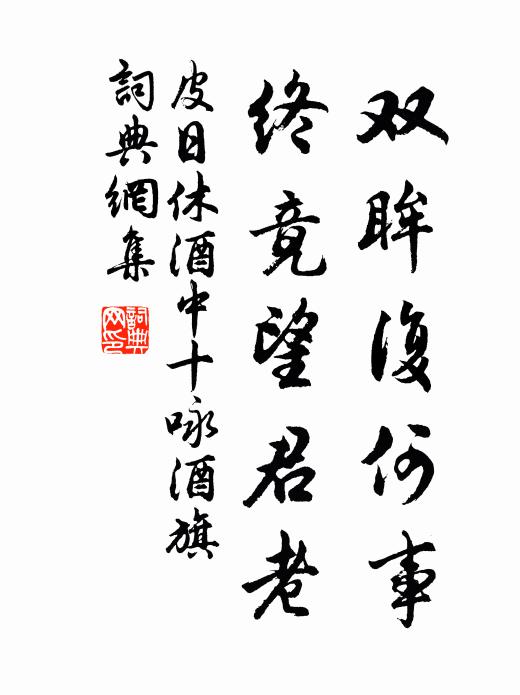 双眸復何事
終竟望君老
皮日休酒中十咏酒旗
詞典網集
詞典网印